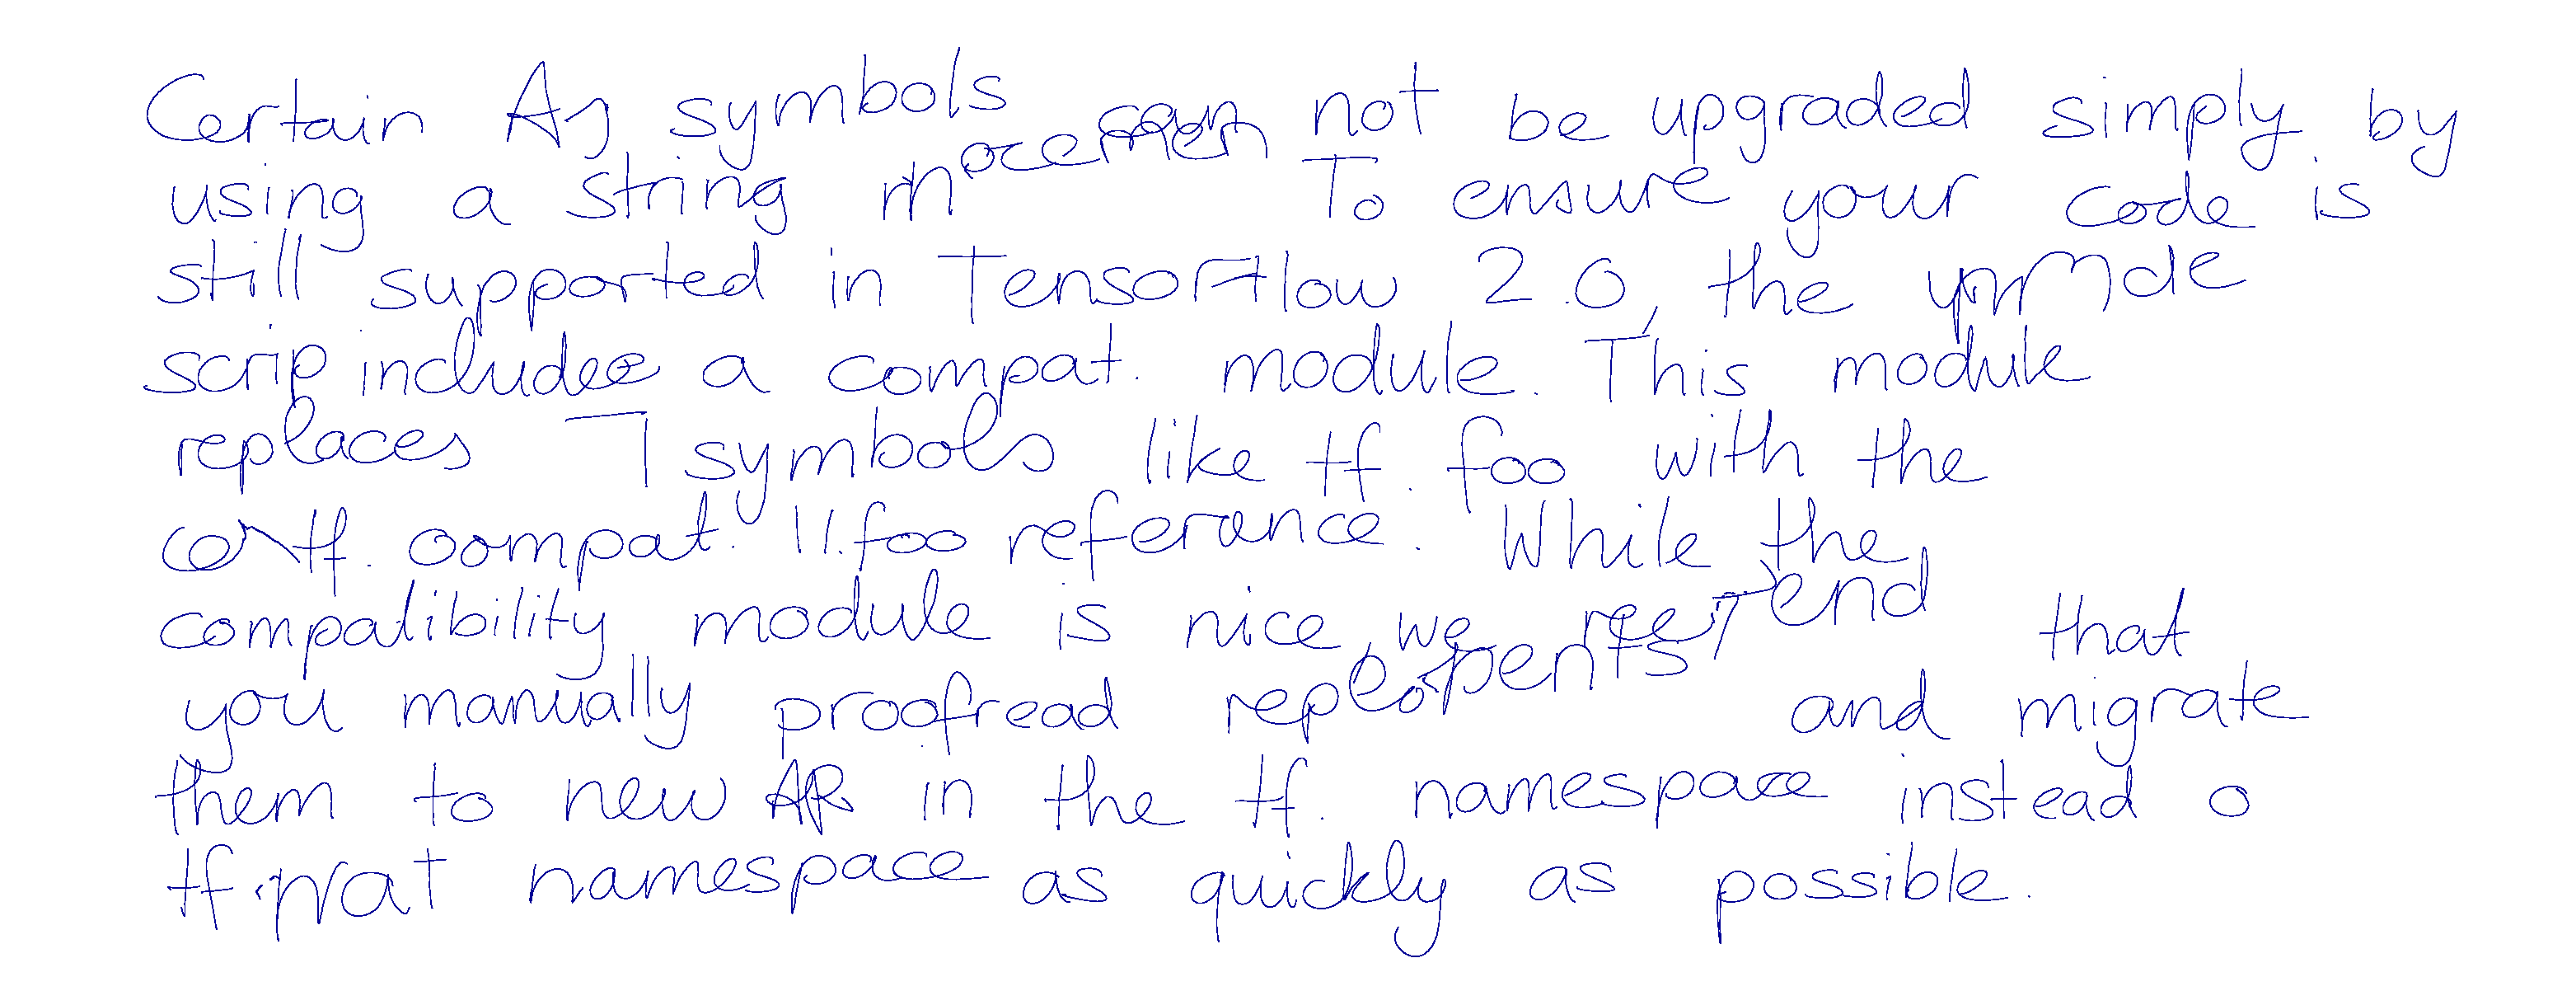 Certain symbols can not be upgraded simply by
using a string To ensure your code is
still supported in TensorFlow 2.0, the
scrip includes a compat. module. This module
replaces symbols like tf. foo with the
tf. compat. foo referance. While the
compatibility module is nice, we that
you manually proofread and migrate
them to new in the tf. namespace instead o
namespace as quickly as possible.